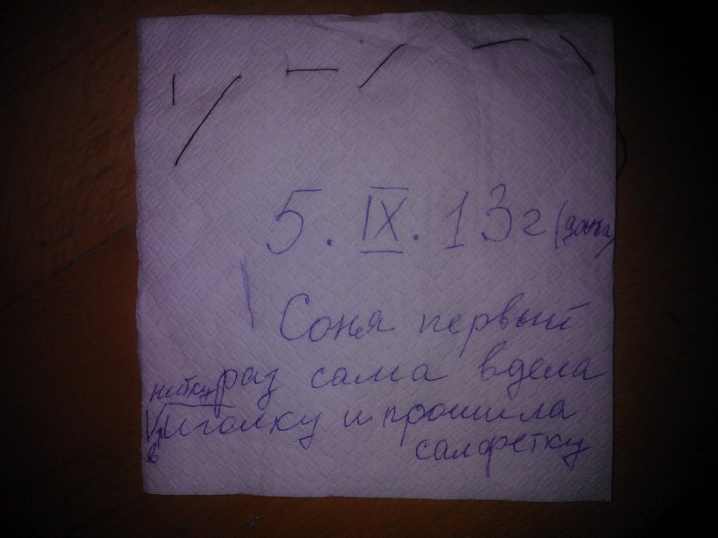 5. IX. 13г (дача)
Соня первый
раз сама вдела
нитку
в иголку и прошила
салфетку